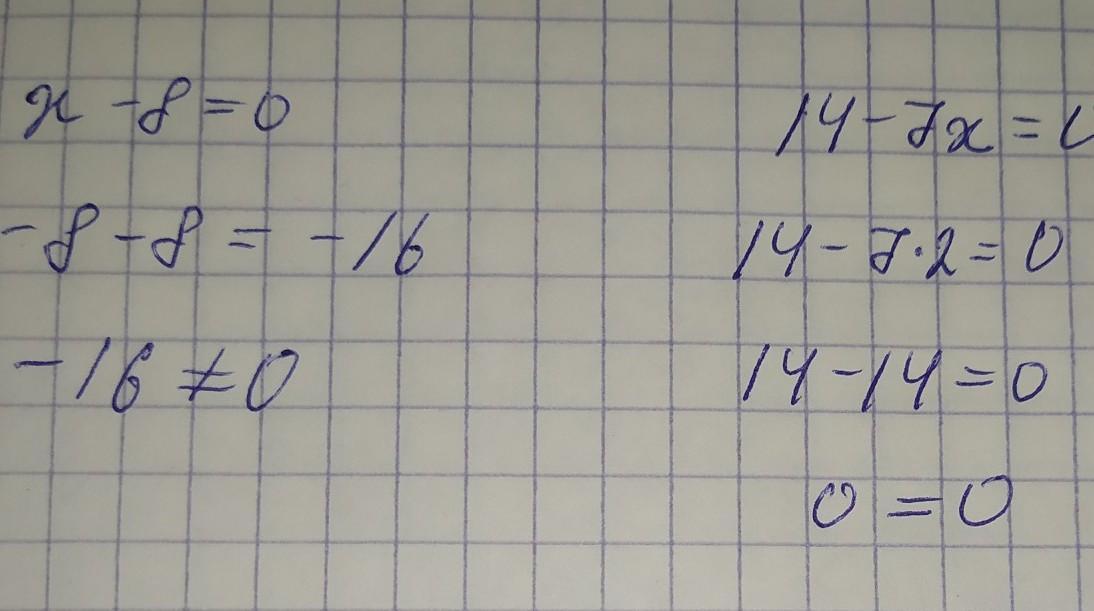 x - 8 = 0
-8 - 8 = -16
-16 ≠ 0
14 - 7x =
14 - 7·2 = 0
14 - 14 = 0
0 = 0